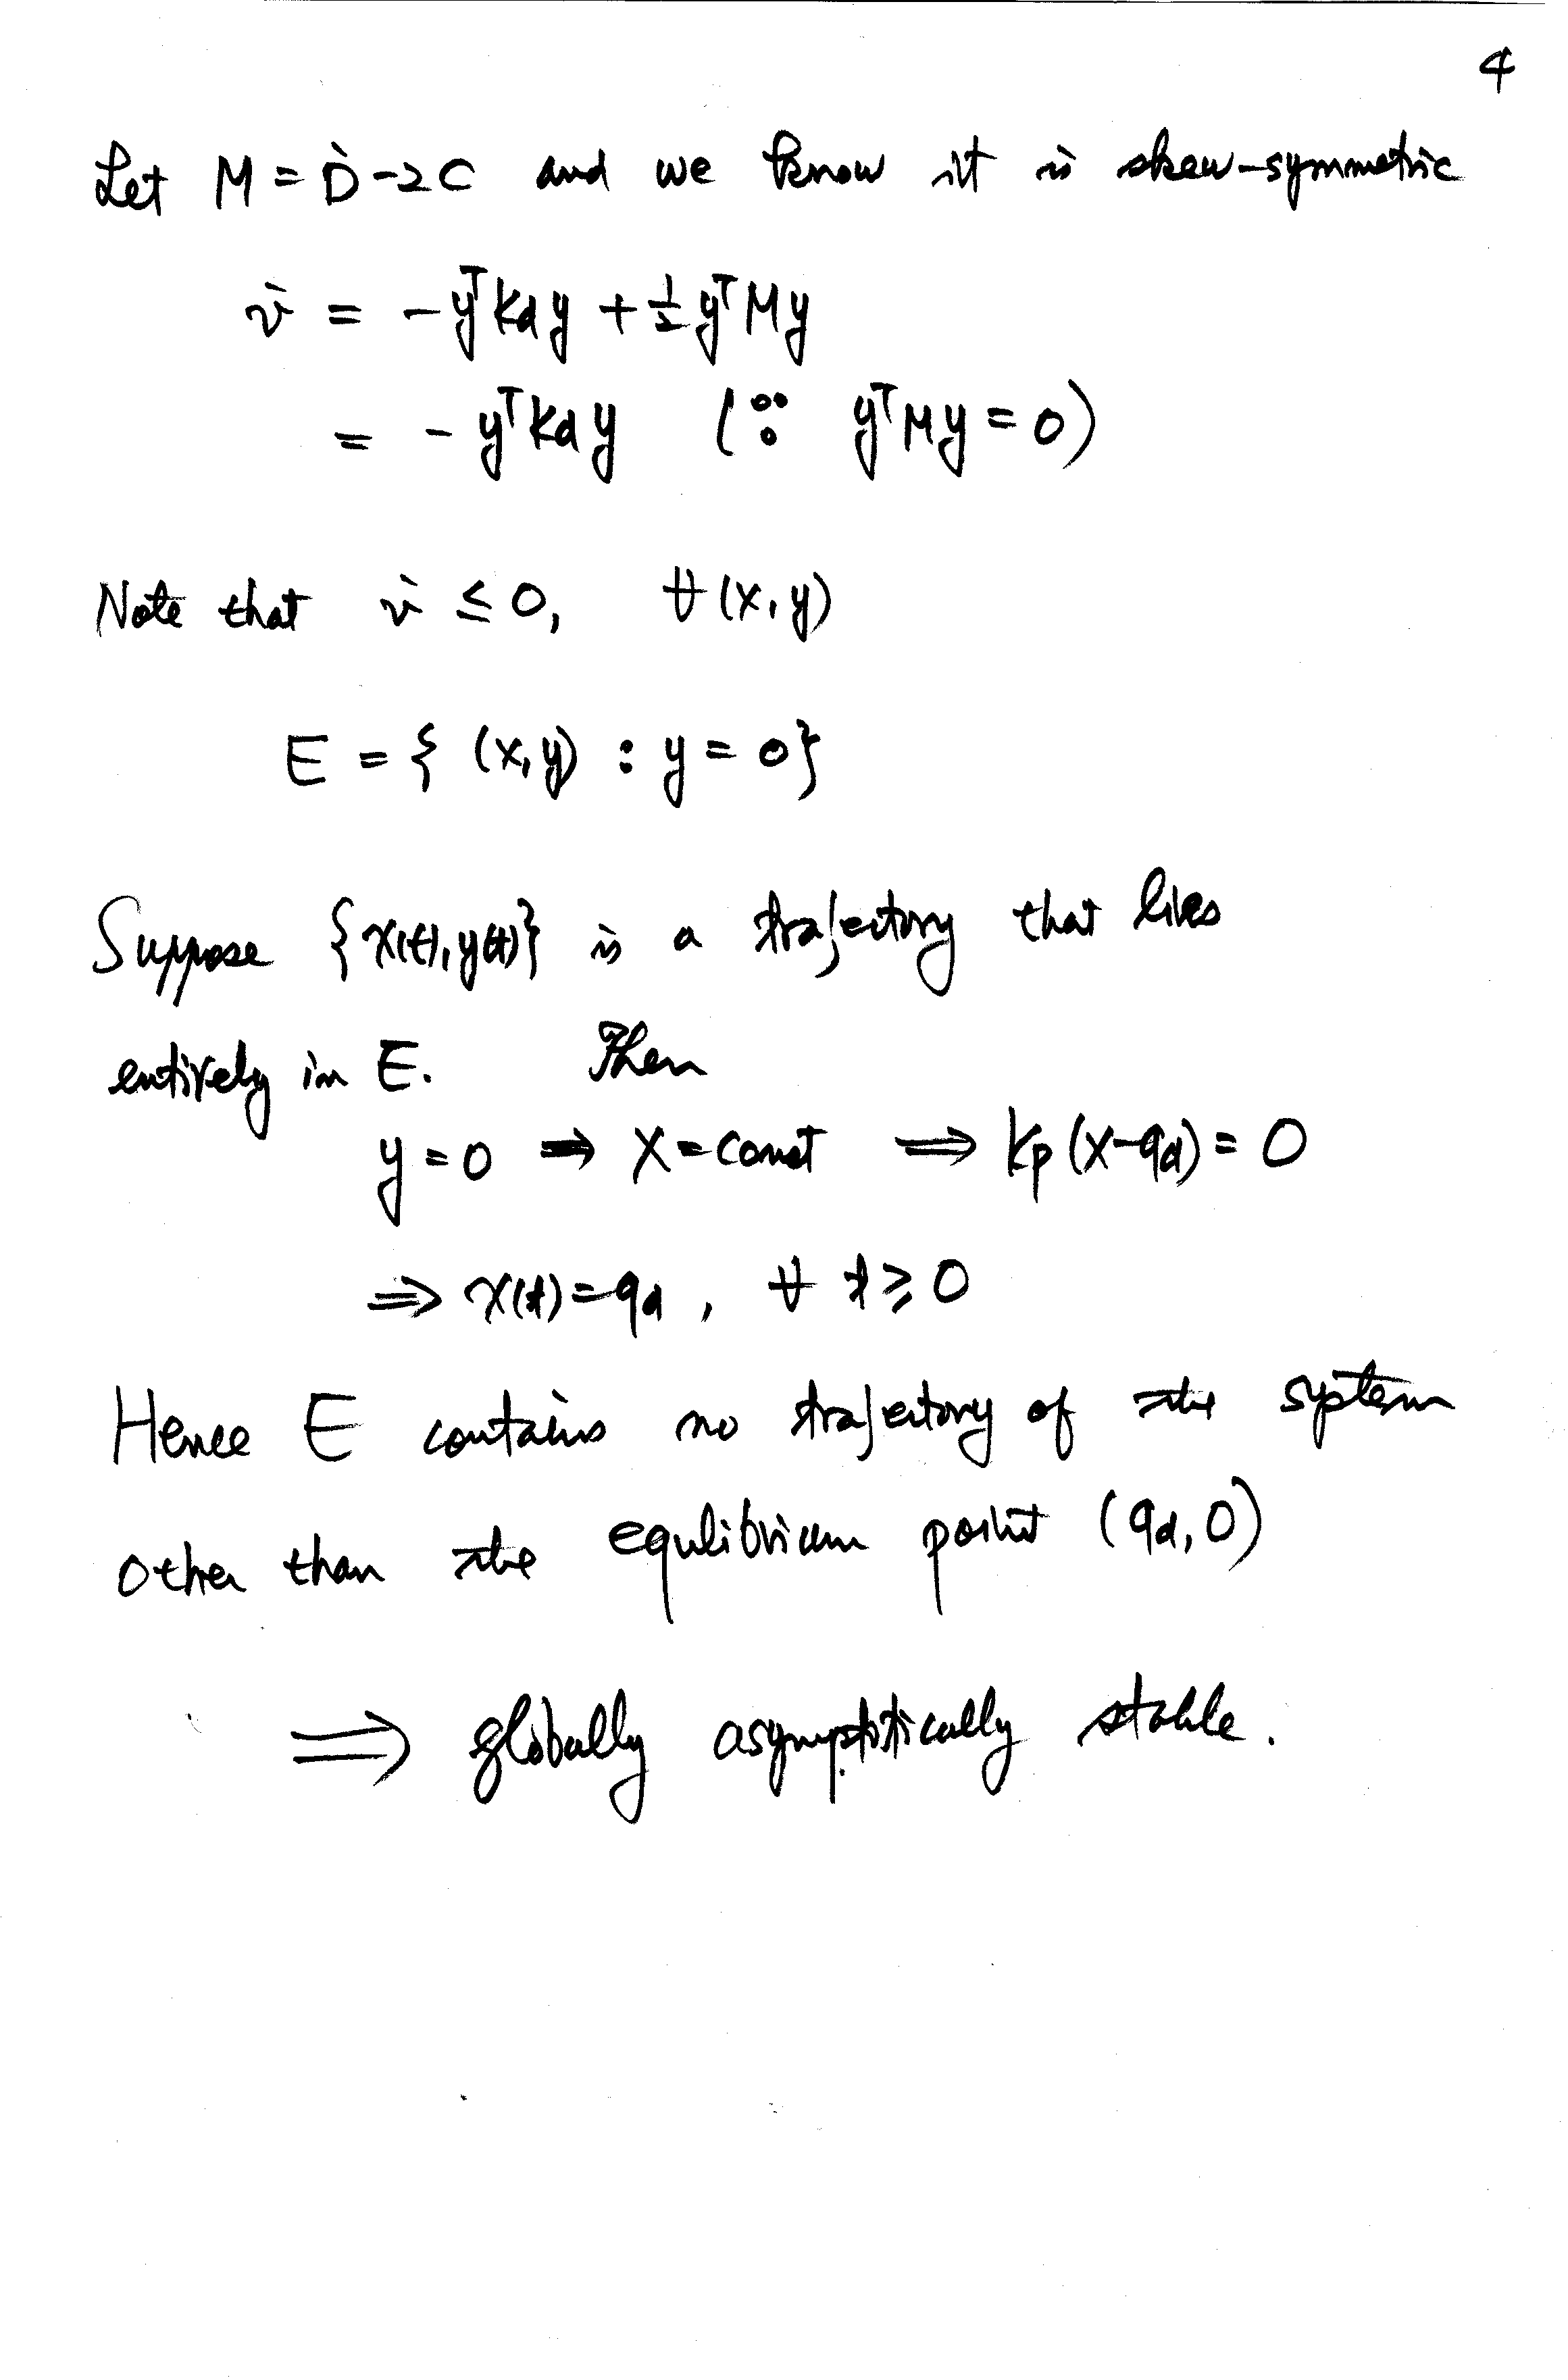 4
Let M = Ḋ - 2C and we know it is skew-symmetric
v̇ = - yᵀ Kd y + ½ yᵀ M y
= - yᵀ Kd y (∵ yᵀ M y = 0)
Note that v̇ ≤ 0, ∀ (x, y)
E = { (x, y) : y = 0 }
Suppose {x(t), y(t)} is a trajectory that lies
entirely in E. Then
y = 0 ⇒ x = const ⇒ Kp (x - qd) = 0
⇒ x(t) = qd , ∀ t ≥ 0
Hence E contains no trajectory of the system
other than the equlibrium point (qd, 0)
⇒ globally asymptotically stable.